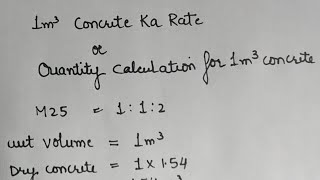 1m³ Concrete Ka Rate
or
Quantity Calculation for 1m³ concrete
M25 = 1:1:2
wet volume = 1m³
Dry concrete = 1 x 1.54